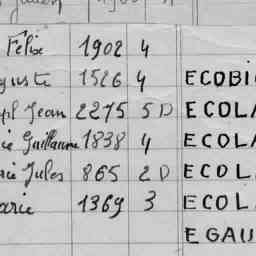 Félix 1902 4
guste 1526 4 ECOBI
Jean 2275 5 D ECOLA
Guillaume 1838 4 ECOLA
Jules 865 2 D ECOL
arie 1369 3 ECOL
EGAU